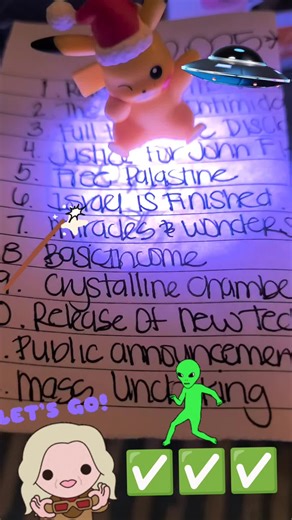 2025
1.
2. The
3. Full
4. Justice for John F
5. Free Palastine
6. Israel is Finished
7. Miracles & Wonders
8 Basic Income
9. Crystalline Chambe
0. Release of new Tec
. Public announcemen
. Mass
LET'S GO!